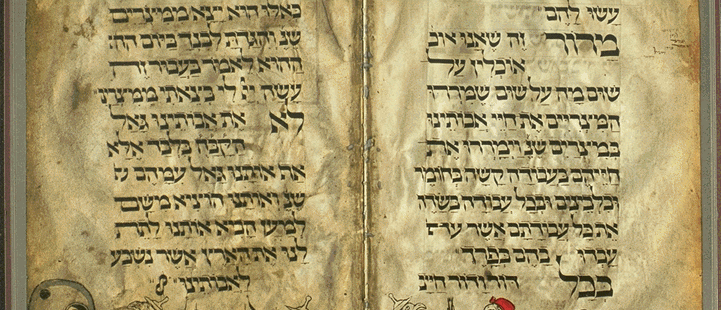 עשו להם
מרור זה שאנו אוכ
אוכלין על
שום מה על שום שמררו
המיצרים את חיי אבותינו
במיצרים שנ וימררו את
חייהם בעבודה קשה בחומר
ובלבנים ובכל עבודה בשדה
את כל עבודתם אשר
עבדו בהם בפרך
בכל דור ודור חייב
כאלו הוא יצא ממיצרים
שנ והגדת לבנך ביום הה
ההוא לאמר בעבור זה
עשה יי לי בצאתי ממיצרים
לא את אבותינו גאל
הקבה בלבד אלא
את אותנו גאל עמהם
שנ ואותנו הוציא משם
למען הביא אותנו לתת
לנו את הארץ אשר נשבע
לאבותינו